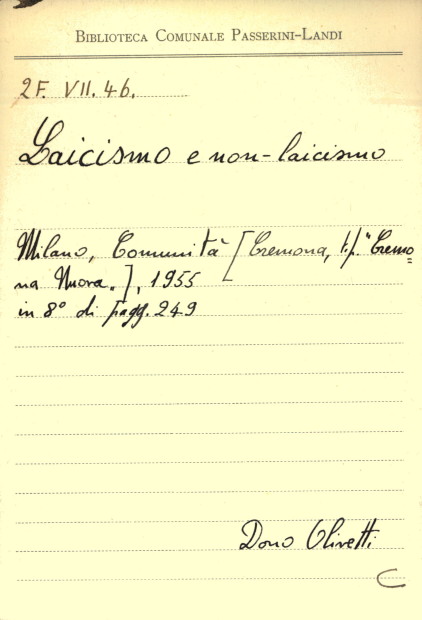 BIBLIOTECA COMUNALE PASSERINI-LANDI
2F. VII. 46.
Laicismo e non-laicismo
Milano, Comunità [Cremona, tip. "Cremo=
na Nuova"], 1955
in 8° di pagg. 249
Dono Olivetti
C